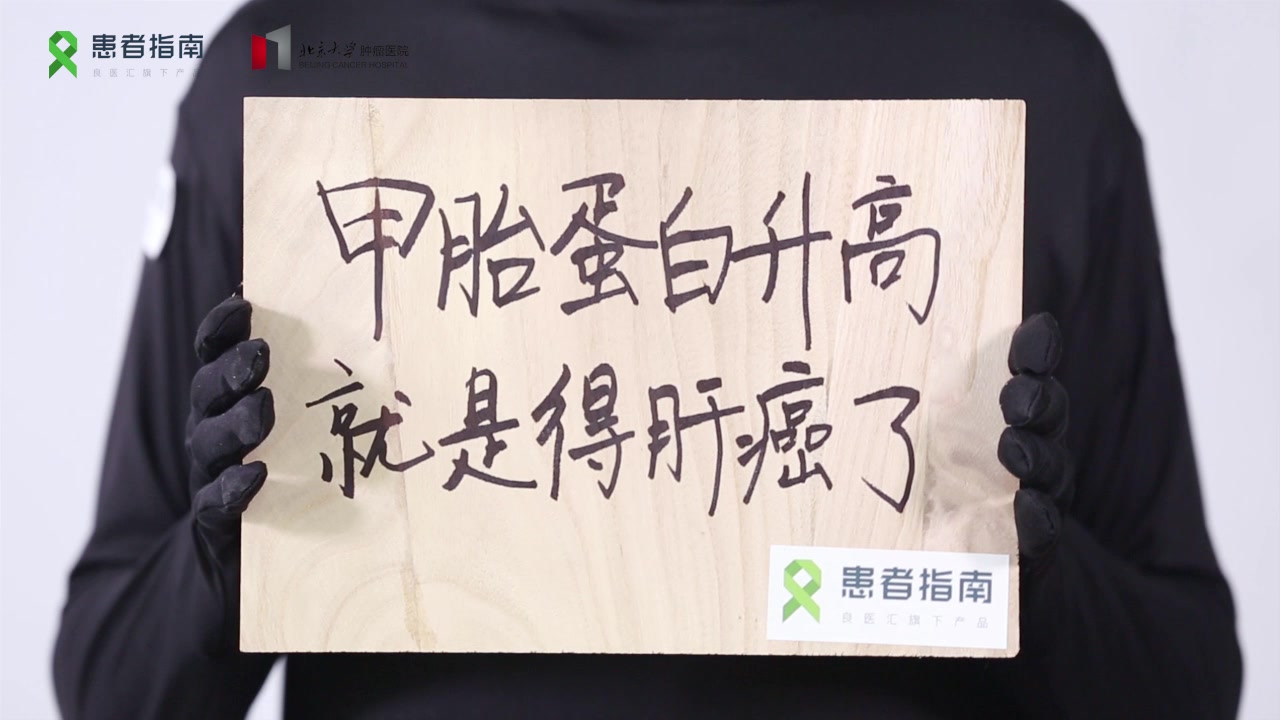 患者指南
良医汇旗下产品
北京大学肿瘤医院
BEIJING CANCER HOSPITAL
甲胎蛋白升高
就是得肝癌了
患者指南
良医汇旗下产品